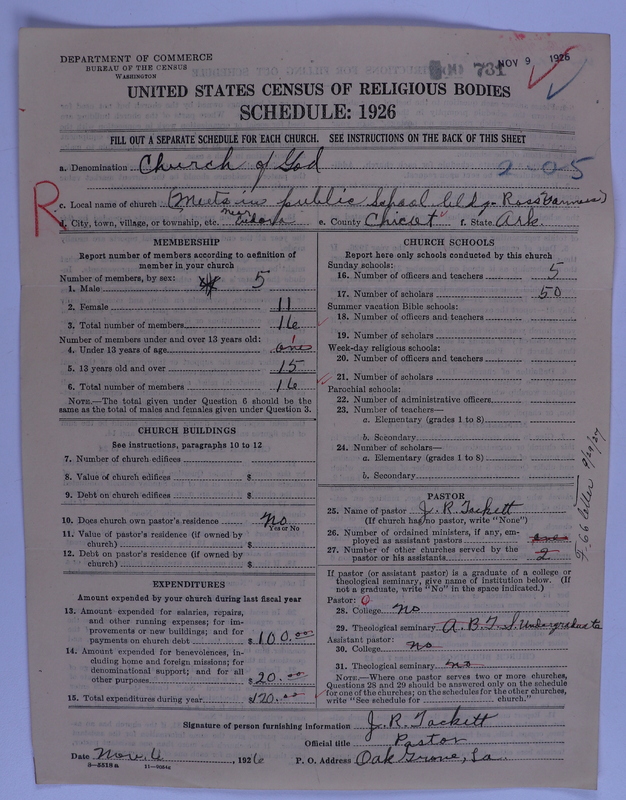 DEPARTMENT OF COMMERCE
BUREAU OF THE CENSUS
WASHINGTON
731 NOV 9 1926
UNITED STATES CENSUS OF RELIGIOUS BODIES
SCHEDULE: 1926
FILL OUT A SEPARATE SCHEDULE FOR EACH CHURCH. SEE INSTRUCTIONS ON THE BACK OF THIS SHEET
a. Denomination Church of God 2-05
R
c. Local name of church (Meets in public School bldg. Ross
d. City, town, village, or township, etc. near Eudora e. County Chicot f. State Ark.
MEMBERSHIP
Report number of members according to definition of
member in your church
Number of members, by sex:
1. Male 5
2. Female 11
3. Total number of members 16
Number of members under and over 13 years old:
4. Under 13 years of age one 1
5. 13 years old and over 15
6. Total number of members 16
NOTE.—The total given under Question 6 should be
same as the total of males and females given under Question 3.
CHURCH BUILDINGS
See instructions, paragraphs 10 to 12
7. Number of church edifices
8. Value of church edifices $
9. Debt on church edifices $
10. Does church own pastor's residence No
Yes or No
11. Value of pastor's residence (if owned by
church) $
12. Debt on pastor's residence (if owned by
church) $
EXPENDITURES
Amount expended by your church during last fiscal year
13. Amount expended for salaries, repairs,
and other running expenses; for im-
provements or new buildings; and for
payments on church debt $100.00
14. Amount expended for benevolences, in-
cluding home and foreign missions; for
denominational support; and for all
other purposes $20.00
15. Total expenditures during year $120.00
CHURCH SCHOOLS
Report here only schools conducted by this church
Sunday schools:
16. Number of officers and teachers 5
17. Number of scholars 50
Summer vacation Bible schools:
18. Number of officers and teachers
19. Number of scholars
Week-day religious schools:
20. Number of officers and teachers
21. Number of scholars
Parochial schools:
22. Number of administrative officers
23. Number of teachers—
a. Elementary (grades 1 to 8)
b. Secondary
24. Number of scholars—
a. Elementary (grades 1 to 8)
b. Secondary
F. 66 letter 9/29/27
PASTOR
25. Name of pastor J. R. Tackett
(If church has no pastor, write "None")
26. Number of ordained ministers, if any, em-
ployed as assistant pastors
27. Number of other churches served by the
pastor or his assistants 2
If pastor (or assistant pastor) is a graduate of a college or
theological seminary, give name of institution below. (If
not a graduate, write "No" in the space indicated.)
Pastor: 0
28. College No
29. Theological seminary A. B. T. S. Undergraduate
Assistant pastor:
30. College no
31. Theological seminary no
NOTE.—Where one pastor serves two or more churches,
Questions 28 and 29 should be answered only on the schedule
for one of the churches; on the schedules for the other churches,
write "See schedule for church."
Signature of person furnishing information J. R. Tackett
Official title Pastor
Date Nov. 6, 1926 P. O. Address Oak Grove, La.
3—5518 a 11—9084a